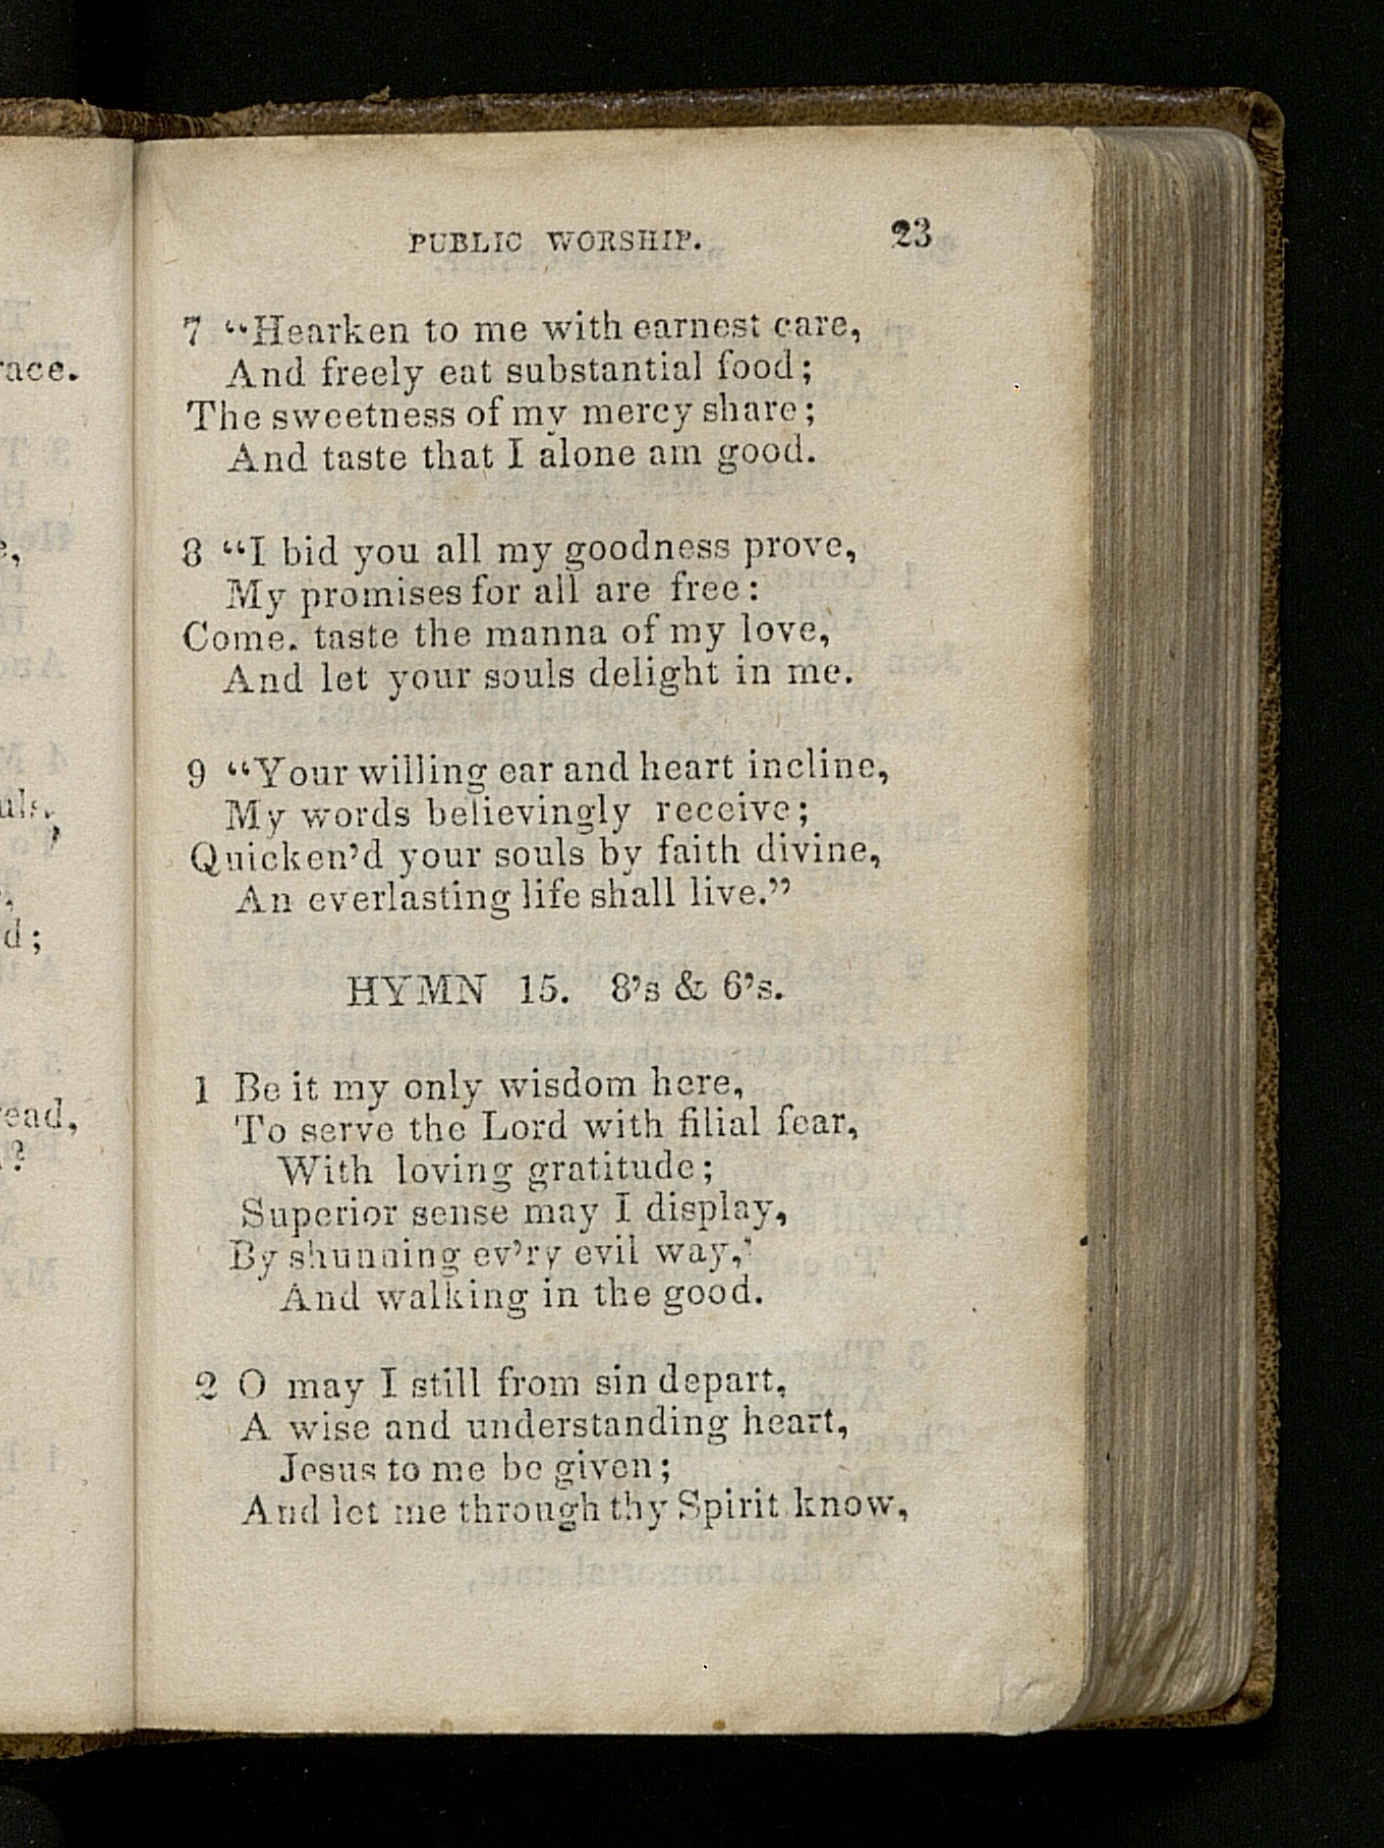 PUBLIC WORSHIP. 23
7 “Hearken to me with earnest care,
And freely eat substantial food;
The sweetness of my mercy share;
And taste that I alone am good.
8 “I bid you all my goodness prove,
My promises for all are free:
Come. taste the manna of my love,
And let your souls delight in me.
9 “Your willing ear and heart incline,
My words believingly receive;
Quicken’d your souls by faith divine,
An everlasting life shall live.”
HYMN 15. 8’s & 6’s.
1 Be it my only wisdom here,
To serve the Lord with filial fear,
With loving gratitude;
Superior sense may I display,
By shunning ev’ry evil way,
And walking in the good.
2 O may I still from sin depart,
A wise and understanding heart,
Jesus to me be given;
And let me through thy Spirit know,